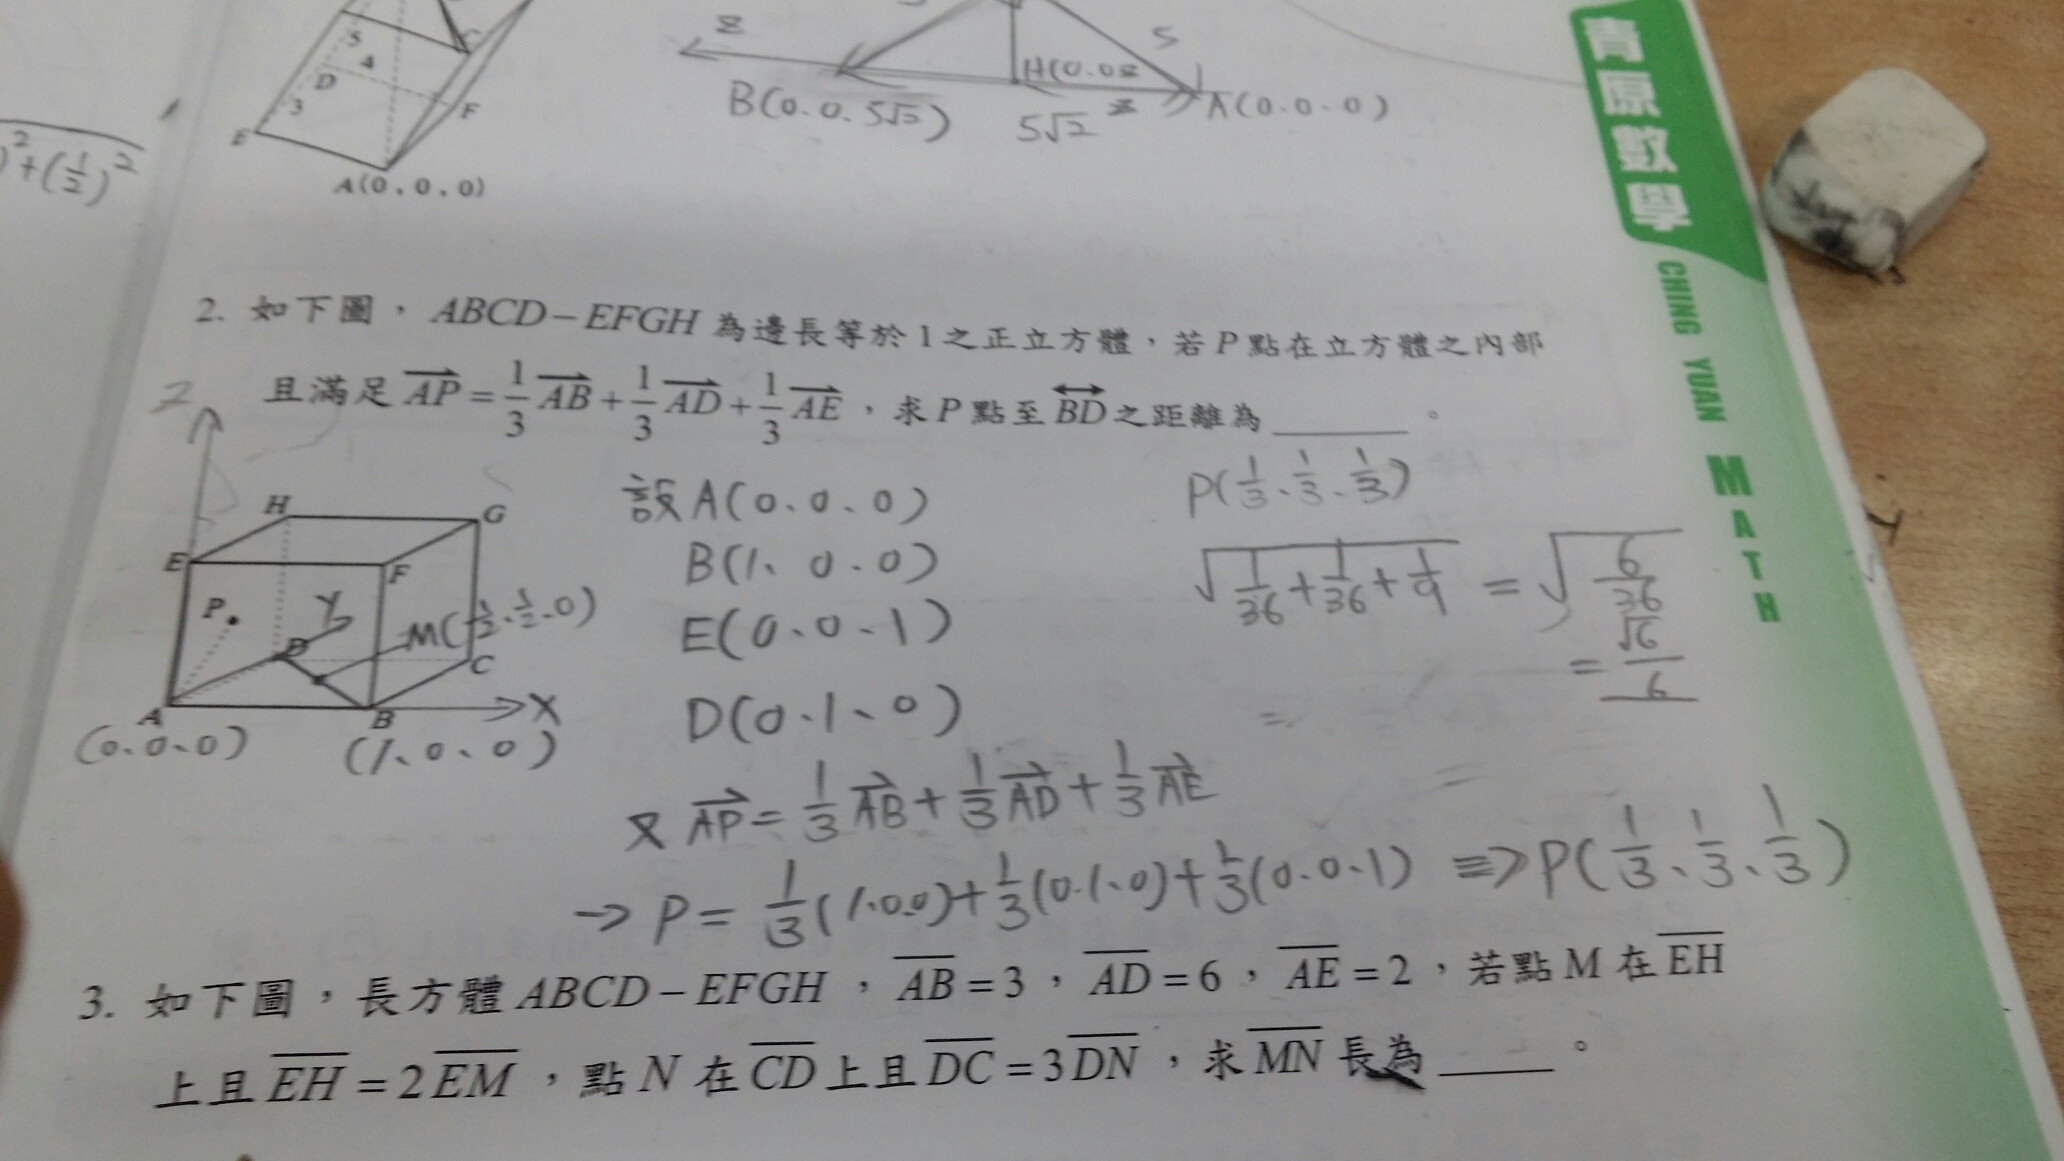 5
4
D
3
C
F
E
A(0,0,0)
)²+(1/2)²
z
5
H(0.0z
B(0.0.5√2)
5√2
z
A(0.0.0)
青原數學
CHING YUAN MATH
2. 如下圖，ABCD－EFGH 為邊長等於1之正立方體，若P點在立方體之內部
且滿足 AP→ = 1/3 AB→ + 1/3 AD→ + 1/3 AE→，求P點至 BD↔ 之距離為＿＿＿。
Z
H
G
E
F
P
Y
D
M(1/2、1/2、0)
C
A
B
X
(0、0、0)
(1、0、0)
設A(0、0、0)
B(1、0、0)
E(0、0、1)
D(0、1、0)
P(1/3、1/3、1/3)
√(1/36+1/36+1/9) = √(6/36)
= √6/6
又 AP→ = 1/3 AB→ + 1/3 AD→ + 1/3 AE→
→ P = 1/3(1、0、0)+1/3(0、1、0)+1/3(0、0、1) => P(1/3、1/3、1/3)
3. 如下圖，長方體ABCD－EFGH，A̅B̅=3，A̅D̅=6，A̅E̅=2，若點M在E̅H̅
上且E̅H̅=2E̅M̅，點N在C̅D̅上且D̅C̅=3D̅N̅，求M̅N̅長為＿＿＿。